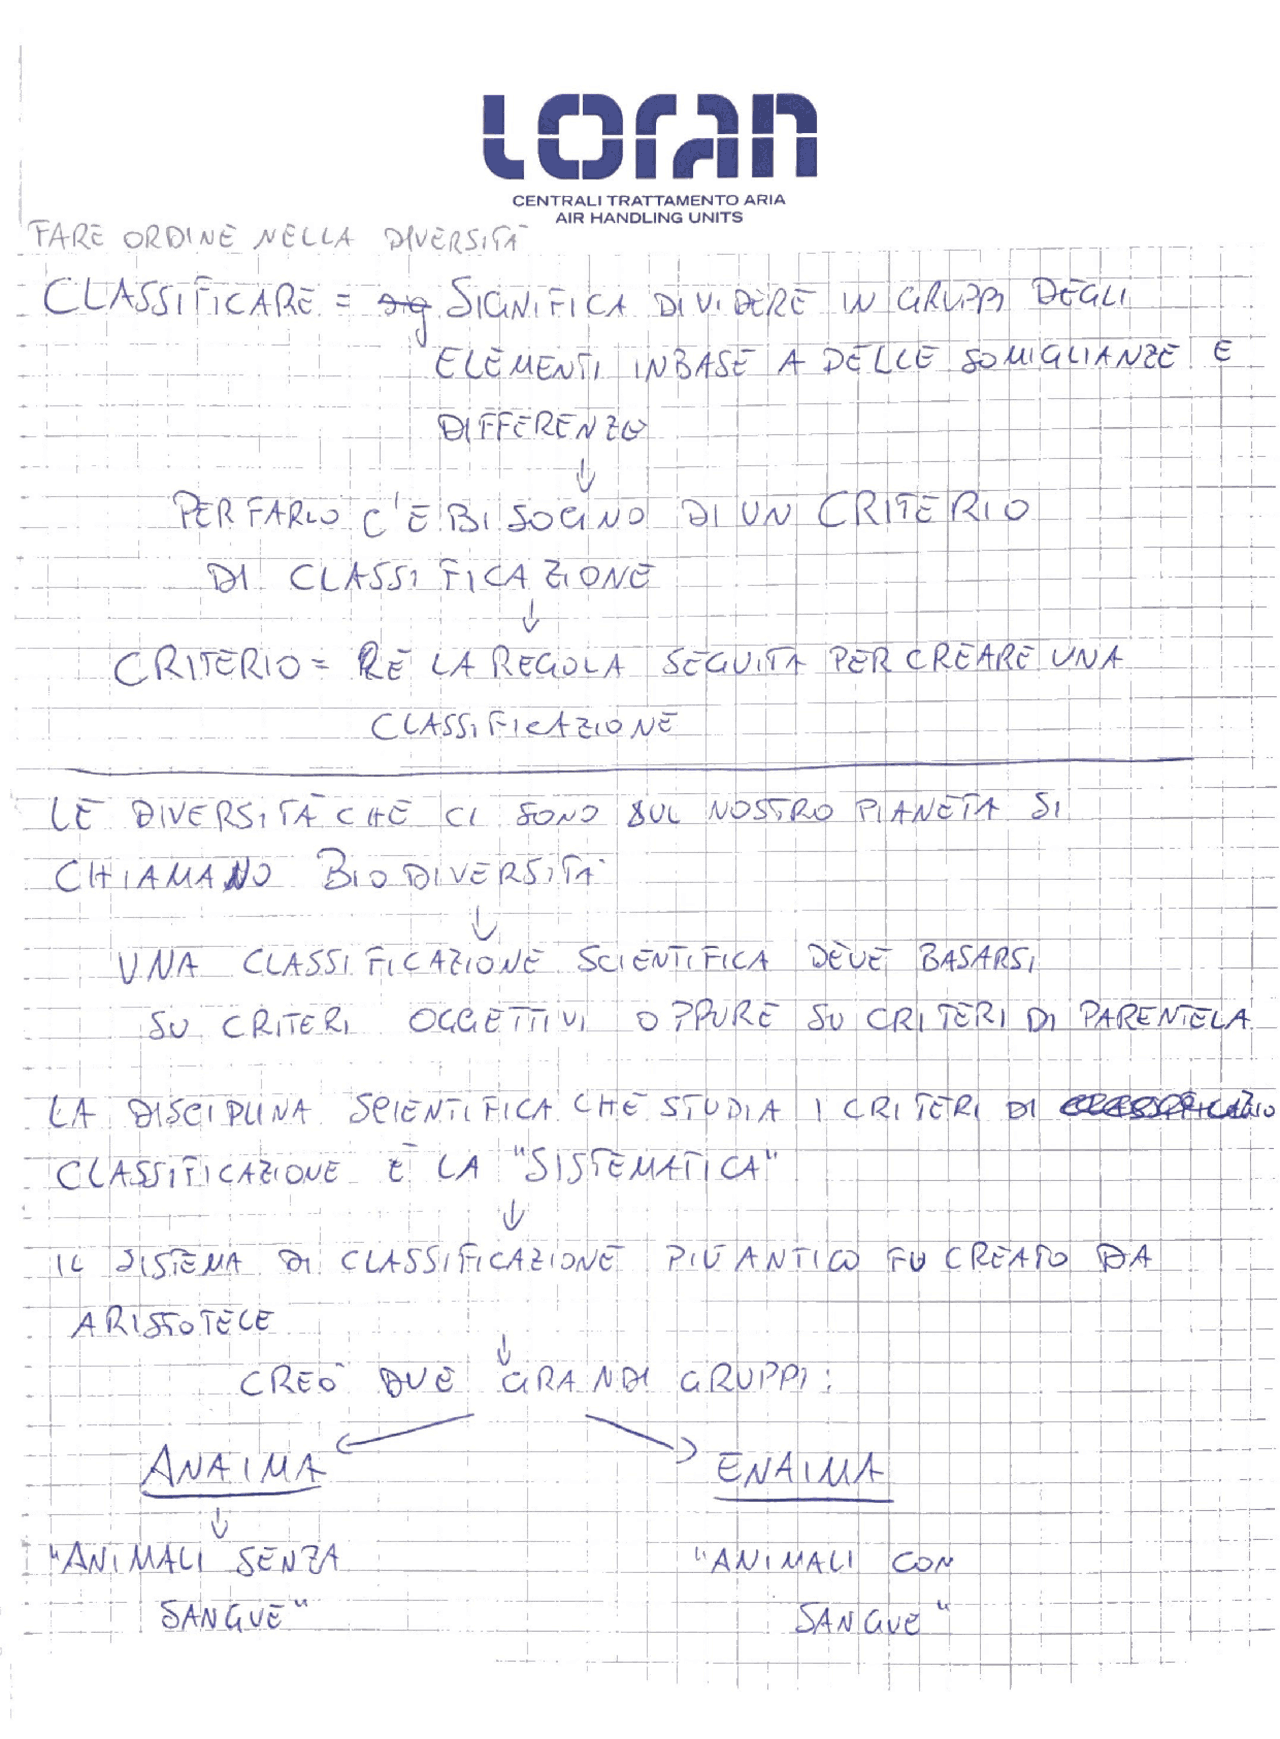 LORAN
CENTRALI TRATTAMENTO ARIA
AIR HANDLING UNITS
FARE ORDINE NELLA DIVERSITÀ
CLASSIFICARE = SIGNIFICA DIVIDERE IN GRUPPI DEGLI
ELEMENTI INBASE A DELLE SOMIGLIANZE E
DIFFERENZE
↓
PER FARLO C'È BISOGNO DI UN CRITERIO
DI CLASSIFICAZIONE
↓
CRITERIO = È LA REGOLA SEGUITA PER CREARE UNA
CLASSIFICAZIONE
LE DIVERSITÀ CHE CI SONO SUL NOSTRO PIANETA SI
CHIAMANO BIODIVERSITÀ
↓
UNA CLASSIFICAZIONE SCIENTIFICA DEVE BASARSI
SU CRITERI OGGETTIVI OPPURE SU CRITERI DI PARENTELA
LA DISCIPLINA SCIENTIFICA CHE STUDIA I CRITERI DI
CLASSIFICAZIONE È LA "SISTEMATICA"
↓
IL SISTEMA DI CLASSIFICAZIONE PIÙ ANTICO FU CREATO DA
ARISTOTELE
↓
CREÒ DUE GRANDI GRUPPI:
ANAIMA ENAIMA
↓
"ANIMALI SENZA "ANIMALI CON
SANGUE" SANGUE"